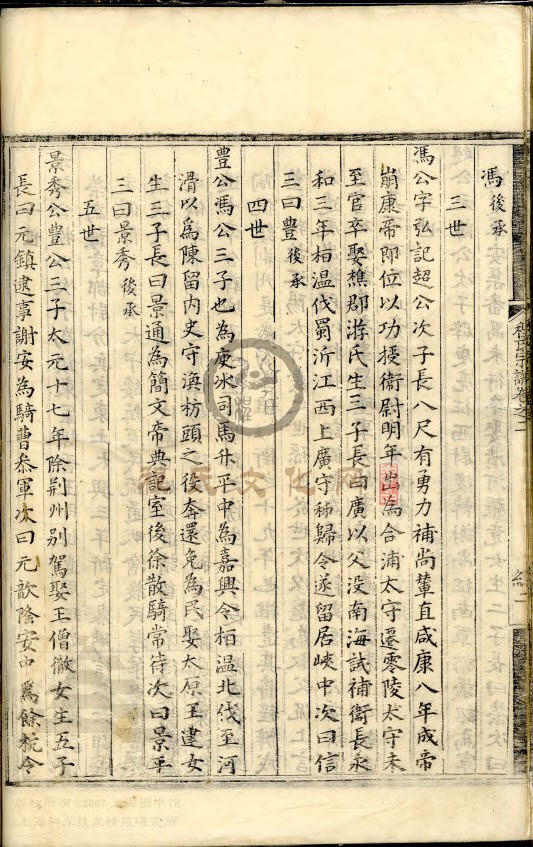 馮後承
三世
馮公字弘記超公次子長八尺有勇力補尚輦直咸康八年成帝
崩康帝即位以功授衛尉明年出為合浦太守遷零陵太守未
至官卒娶樵郡游氏生三子長曰廣以父没南海試補衙長永
和三年栢温伐蜀沂江西上廣守秭歸令遂留居峽中次曰信
三曰豊後承
四世
豊公馮公三子也為庾冰司馬升平中為嘉興令栢温北伐至河
滑以為陳留内史守渙枋頭之役奔還免為民娶太原王逮女
生三子長曰景通為簡文帝典記室後徐散騎常待次曰景平
三曰景秀後承
五世
景秀公豊公三子太元十七年除荆州别駕娶王僧徹女生五子
長曰元鎮逮事謝安為騎曹叅軍次曰元歆隆安中為餘杭令
氏宗譜卷之二
版权所有©2007上海图书馆
上海科学技术情报研究所